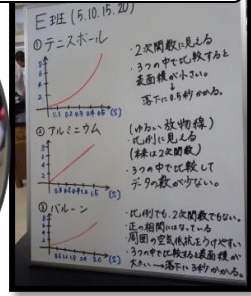 E班(5.10.15.20)
①テニスボール
・2次関数に見える
・3つの中で比較すると
表面積が小さい。
↓
落下に0.5秒かかる。
②アルミニウム
(ゆるい放物線)
・比例に見える
(本来は2次関数)
・3つの中で比較して
データの数が少ない。
③バルーン
・比例でも、2次関数でもない。
・正の相関にはなっている
・周囲の空気抵抗をうけやすい
・3つの中で比較すると表面積が
大きい→落下に3秒かかる。